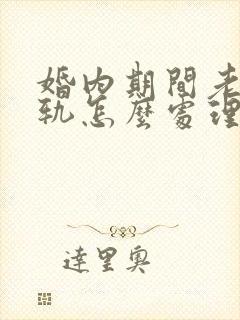 婚内期間老
軌怎麼處理
達里奧